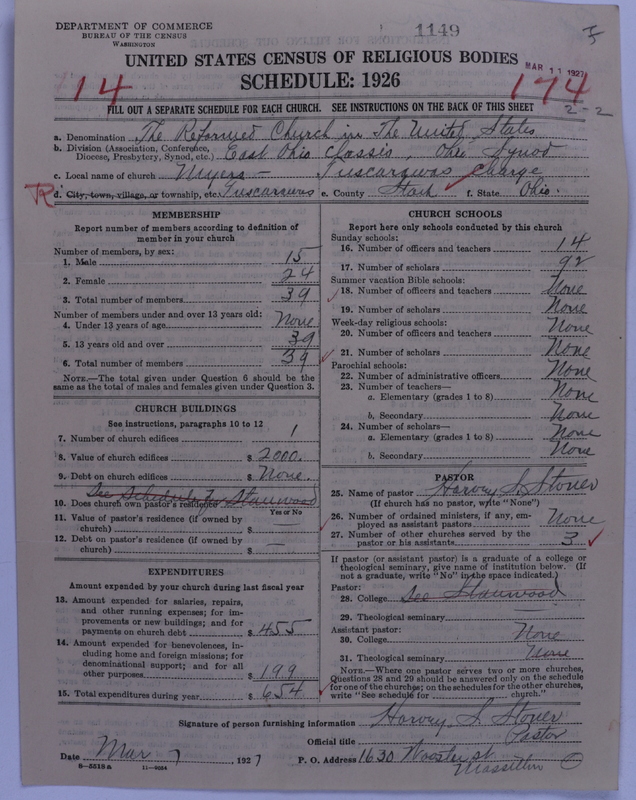 DEPARTMENT OF COMMERCE
BUREAU OF THE CENSUS
WASHINGTON
1149
UNITED STATES CENSUS OF RELIGIOUS BODIES
MAR 11 1927
SCHEDULE: 1926
14
174
2-2
FILL OUT A SEPARATE SCHEDULE FOR EACH CHURCH. SEE INSTRUCTIONS ON THE BACK OF THIS SHEET
a. Denomination The Reformed Church in The United States
b. Division (Association, Conference, Diocese, Presbytery, Synod, etc.) East Ohio Classis, Ohio Synod
c. Local name of church Myers - Tuscarawas Charge
R d. City, town, village, or township, etc. Tuscarawas e. County Stark f. State Ohio.
MEMBERSHIP
Report number of members according to definition of member in your church
Number of members, by sex:
1. Male 15
2. Female 24
3. Total number of members 39
Number of members under and over 13 years old:
4. Under 13 years of age None
5. 13 years old and over 39
6. Total number of members 39
NOTE.—The total given under Question 6 should be the same as the total of males and females given under Question 3.
CHURCH BUILDINGS
See instructions, paragraphs 10 to 12
7. Number of church edifices 1
8. Value of church edifices $ 2000.
9. Debt on church edifices $ None.
See Schedule for Stanwood
10. Does church own pastor's residence
Yes or No
11. Value of pastor's residence (if owned by church) $
12. Debt on pastor's residence (if owned by church) $ —
EXPENDITURES
Amount expended by your church during last fiscal year
13. Amount expended for salaries, repairs, and other running expenses; for improvements or new buildings; and for payments on church debt $ 455
14. Amount expended for benevolences, including home and foreign missions; for denominational support; and for all other purposes $ 199
15. Total expenditures during year $ 654
CHURCH SCHOOLS
Report here only schools conducted by this church
Sunday schools:
16. Number of officers and teachers 14
17. Number of scholars 92
Summer vacation Bible schools:
18. Number of officers and teachers None
19. Number of scholars None
Week-day religious schools:
20. Number of officers and teachers None
21. Number of scholars None
Parochial schools:
22. Number of administrative officers None
23. Number of teachers—
a. Elementary (grades 1 to 8) None
b. Secondary None
24. Number of scholars—
a. Elementary (grades 1 to 8) None
b. Secondary None
PASTOR
25. Name of pastor Harvey S. Stover
(If church has no pastor, write "None")
26. Number of ordained ministers, if any, employed as assistant pastors None
27. Number of other churches served by the pastor or his assistants 3
If pastor (or assistant pastor) is a graduate of a college or theological seminary, give name of institution below. (If not a graduate, write "No" in the space indicated.)
Pastor:
28. College See Stanwood
29. Theological seminary
Assistant pastor:
30. College None
31. Theological seminary None
NOTE.—Where one pastor serves two or more churches, Questions 28 and 29 should be answered only on the schedule for one of the churches; on the schedules for the other churches, write "See schedule for church."
Signature of person furnishing information Harvey S. Stover
Official title Pastor
Date Mar 7, 1927 P. O. Address 1630 Wooster st
Massillon O
8—5518a 11—9064